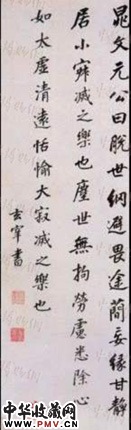 晁文元公曰脱世網避畏途蕳妄緣甘靜
居小寂滅之樂也塵世無拘勞慮悉除心
如太虛清遠恬愉大寂滅之樂也
玄宰書
中华收藏网
WWW.PMV.CN